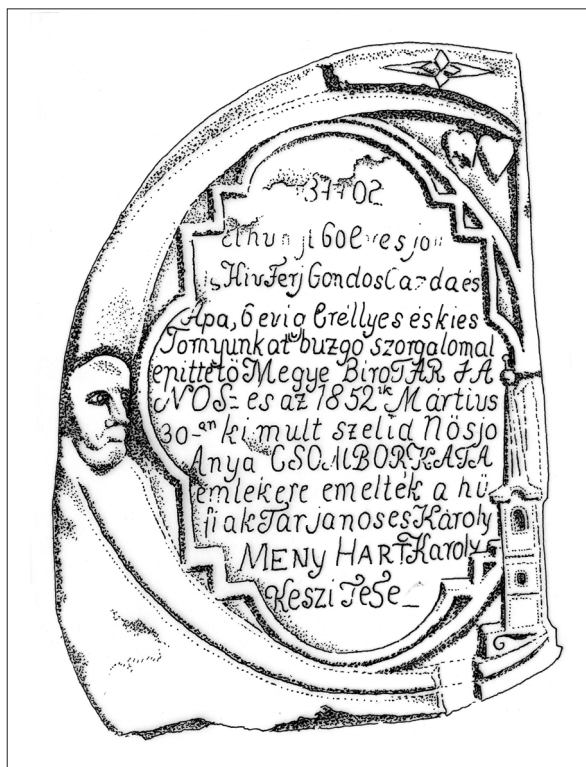 Hiv Ferj Gondos Cazda és
Apa, 6 evig Eréllyes és kies
Tornyunkat buzgo szorgalomal
epittetö Megye Biro TAR JA
NOS= es az 1852ik Mártius
30-an ki mult szelid Nös jo
Anya CSOMBOR KATA
emlekere emelték a hü
fiak Tar janos es Károly
MENY HART Karoly
Keszi TeSe_